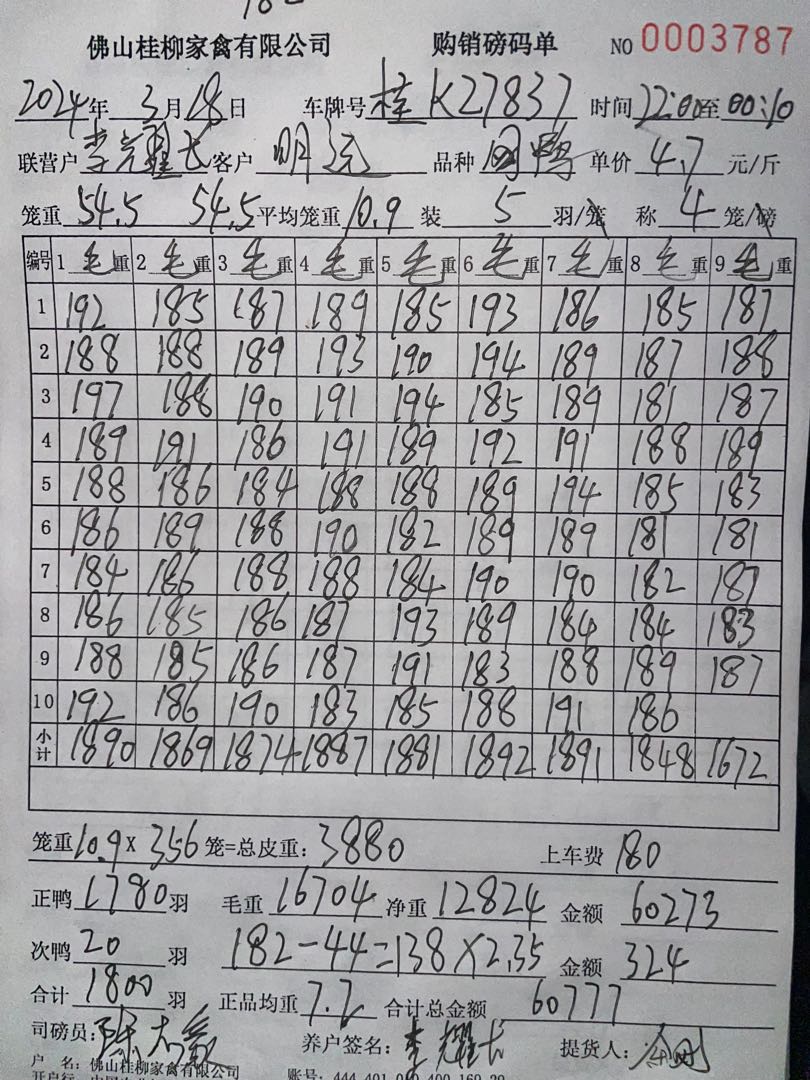 佛山桂柳家禽有限公司 购销磅码单 NO 0003787
2024年 3月18日 车牌号 桂K27837 时间 22:00至00:10
联营户 李耀长 客户 明远 品种 肉鸭 单价 4.7 元/斤
笼重 54.5 54.5 平均笼重 10.9 装 5 羽/笼 称 4 笼/磅
编号 1 毛重 2 毛重 3 毛重 4 毛重 5 毛重 6 毛重 7 毛重 8 毛重 9 毛重
1 192 185 187 189 185 193 186 185 187
2 188 188 189 193 190 194 189 187 188
3 197 188 190 191 194 185 189 181 187
4 189 191 186 191 189 192 191 188 189
5 188 186 184 188 188 189 194 185 183
6 186 189 188 190 182 189 189 181 181
7 184 186 188 188 184 190 190 182 187
8 186 185 186 187 193 189 184 184 183
9 188 185 186 187 191 183 188 189 187
10 192 186 190 183 185 188 191 186
小计 1890 1869 1874 1887 1881 1892 1891 1848 1672
笼重 10.9 × 356 笼=总皮重: 3880 上车费 180
正鸭 1780 羽 毛重 16704 净重 12824 金额 60273
次鸭 20 羽 182-44=138×2.35 金额 324
合计 1800 羽 正品均重 7.2 合计总金额 60777
司磅员: 陈 养户签名: 李耀长 提货人:
户 名: 佛山桂柳家禽有限公司 账号: 444 401 010 400 160 39